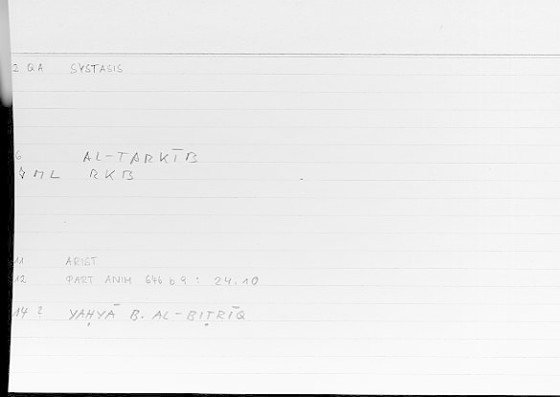 2 QA SYSTASIS
6 AL-TARKĪB
ML RKB
11 ARIST
12 PART ANIM 646 b 9 : 24.10
14 2 YAḤYĀ B. AL-BIṬRĪQ